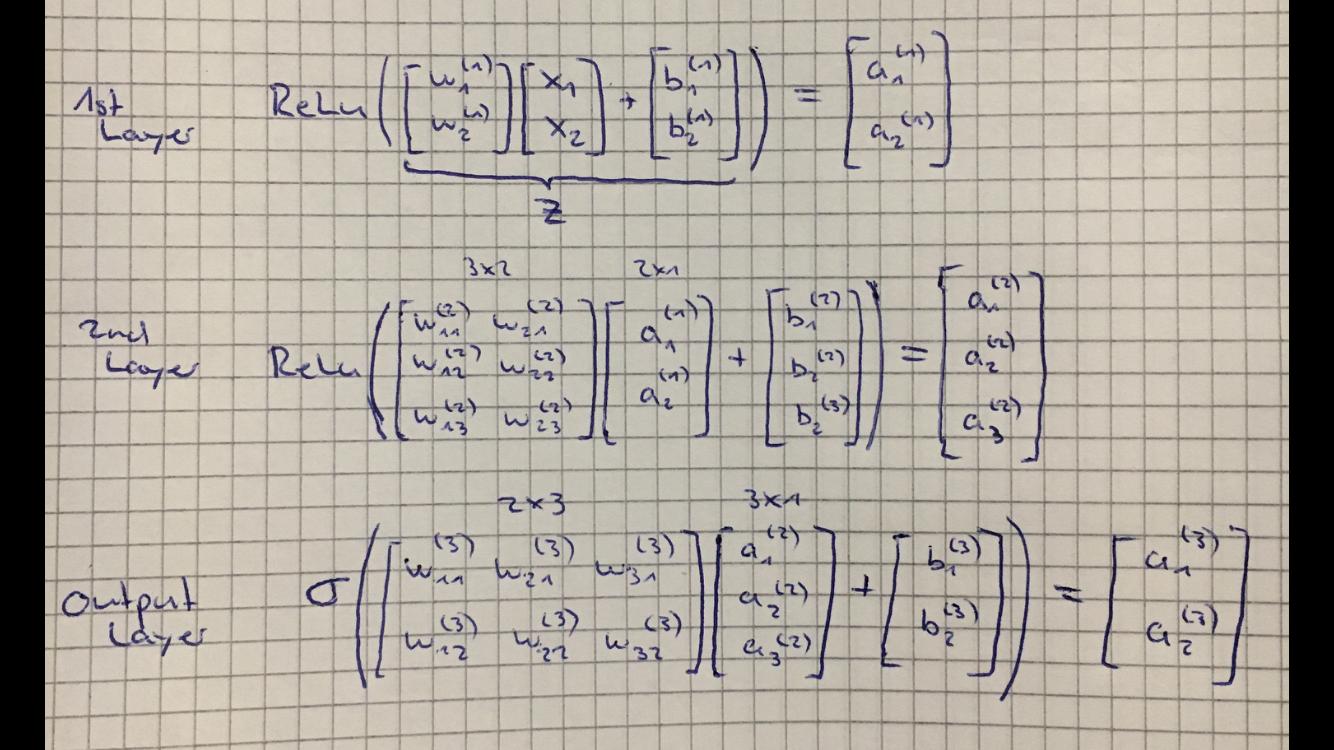 1st Layer ReLu ( [ w₁⁽¹⁾ ; w₂⁽¹⁾ ] [ x₁ ; x₂ ] + [ b₁⁽¹⁾ ; b₂⁽¹⁾ ] ) = [ a₁⁽¹⁾ ; a₂⁽¹⁾ ]
z
3x2 2x1
2nd Layer ReLu ( [ w₁₁⁽²⁾ w₂₁⁽²⁾ ; w₁₂⁽²⁾ w₂₂⁽²⁾ ; w₁₃⁽²⁾ w₂₃⁽²⁾ ] [ a₁⁽¹⁾ ; a₂⁽¹⁾ ] + [ b₁⁽²⁾ ; b₂⁽²⁾ ; b₂⁽³⁾ ] ) = [ a₁⁽²⁾ ; a₂⁽²⁾ ; a₃⁽²⁾ ]
2x3 3x1
Output Layer σ ( [ w₁₁⁽³⁾ w₂₁⁽³⁾ w₃₁⁽³⁾ ; w₁₂⁽³⁾ w₂₂⁽³⁾ w₃₂⁽³⁾ ] [ a₁⁽²⁾ ; a₂⁽²⁾ ; a₃⁽²⁾ ] + [ b₁⁽³⁾ ; b₂⁽³⁾ ] ) = [ a₁⁽³⁾ ; a₂⁽³⁾ ]